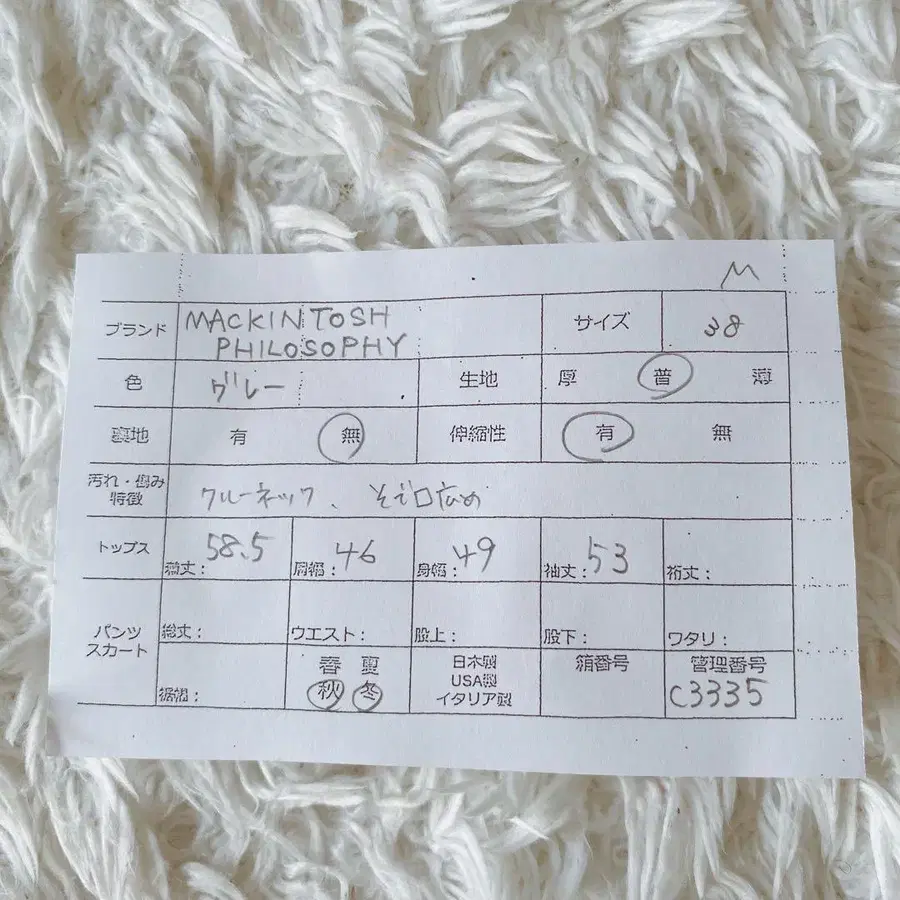 M
ブランド MACKINTOSH PHILOSOPHY サイズ 38
色 グレー 生地 厚 普 薄
裏地 有 無 伸縮性 有 無
汚れ・傷み 特徴 クルーネック、そで口広め
トップス 着丈: 58.5 肩幅: 46 身幅: 49 袖丈: 53 裄丈:
パンツ スカート 総丈: ウエスト: 股上: 股下: ワタリ:
裾幅: 春 夏 秋 冬 日本製 USA製 イタリア製 箱番号 管理番号 C3335